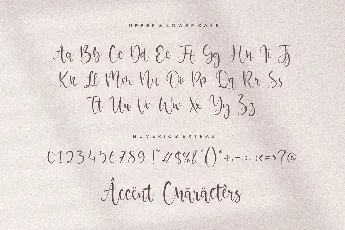 UPPER & LOWER CASE
Aa Bb Cc Dd Ee Ff Gg Hh Ii Jj
Kk Ll Mm Nn Oo Pp Qq Rr Ss
Tt Uu Vv Ww Xx Yy Zz
NUMERIC & EXTRAS
0123456789
Âccënt Charactêrs